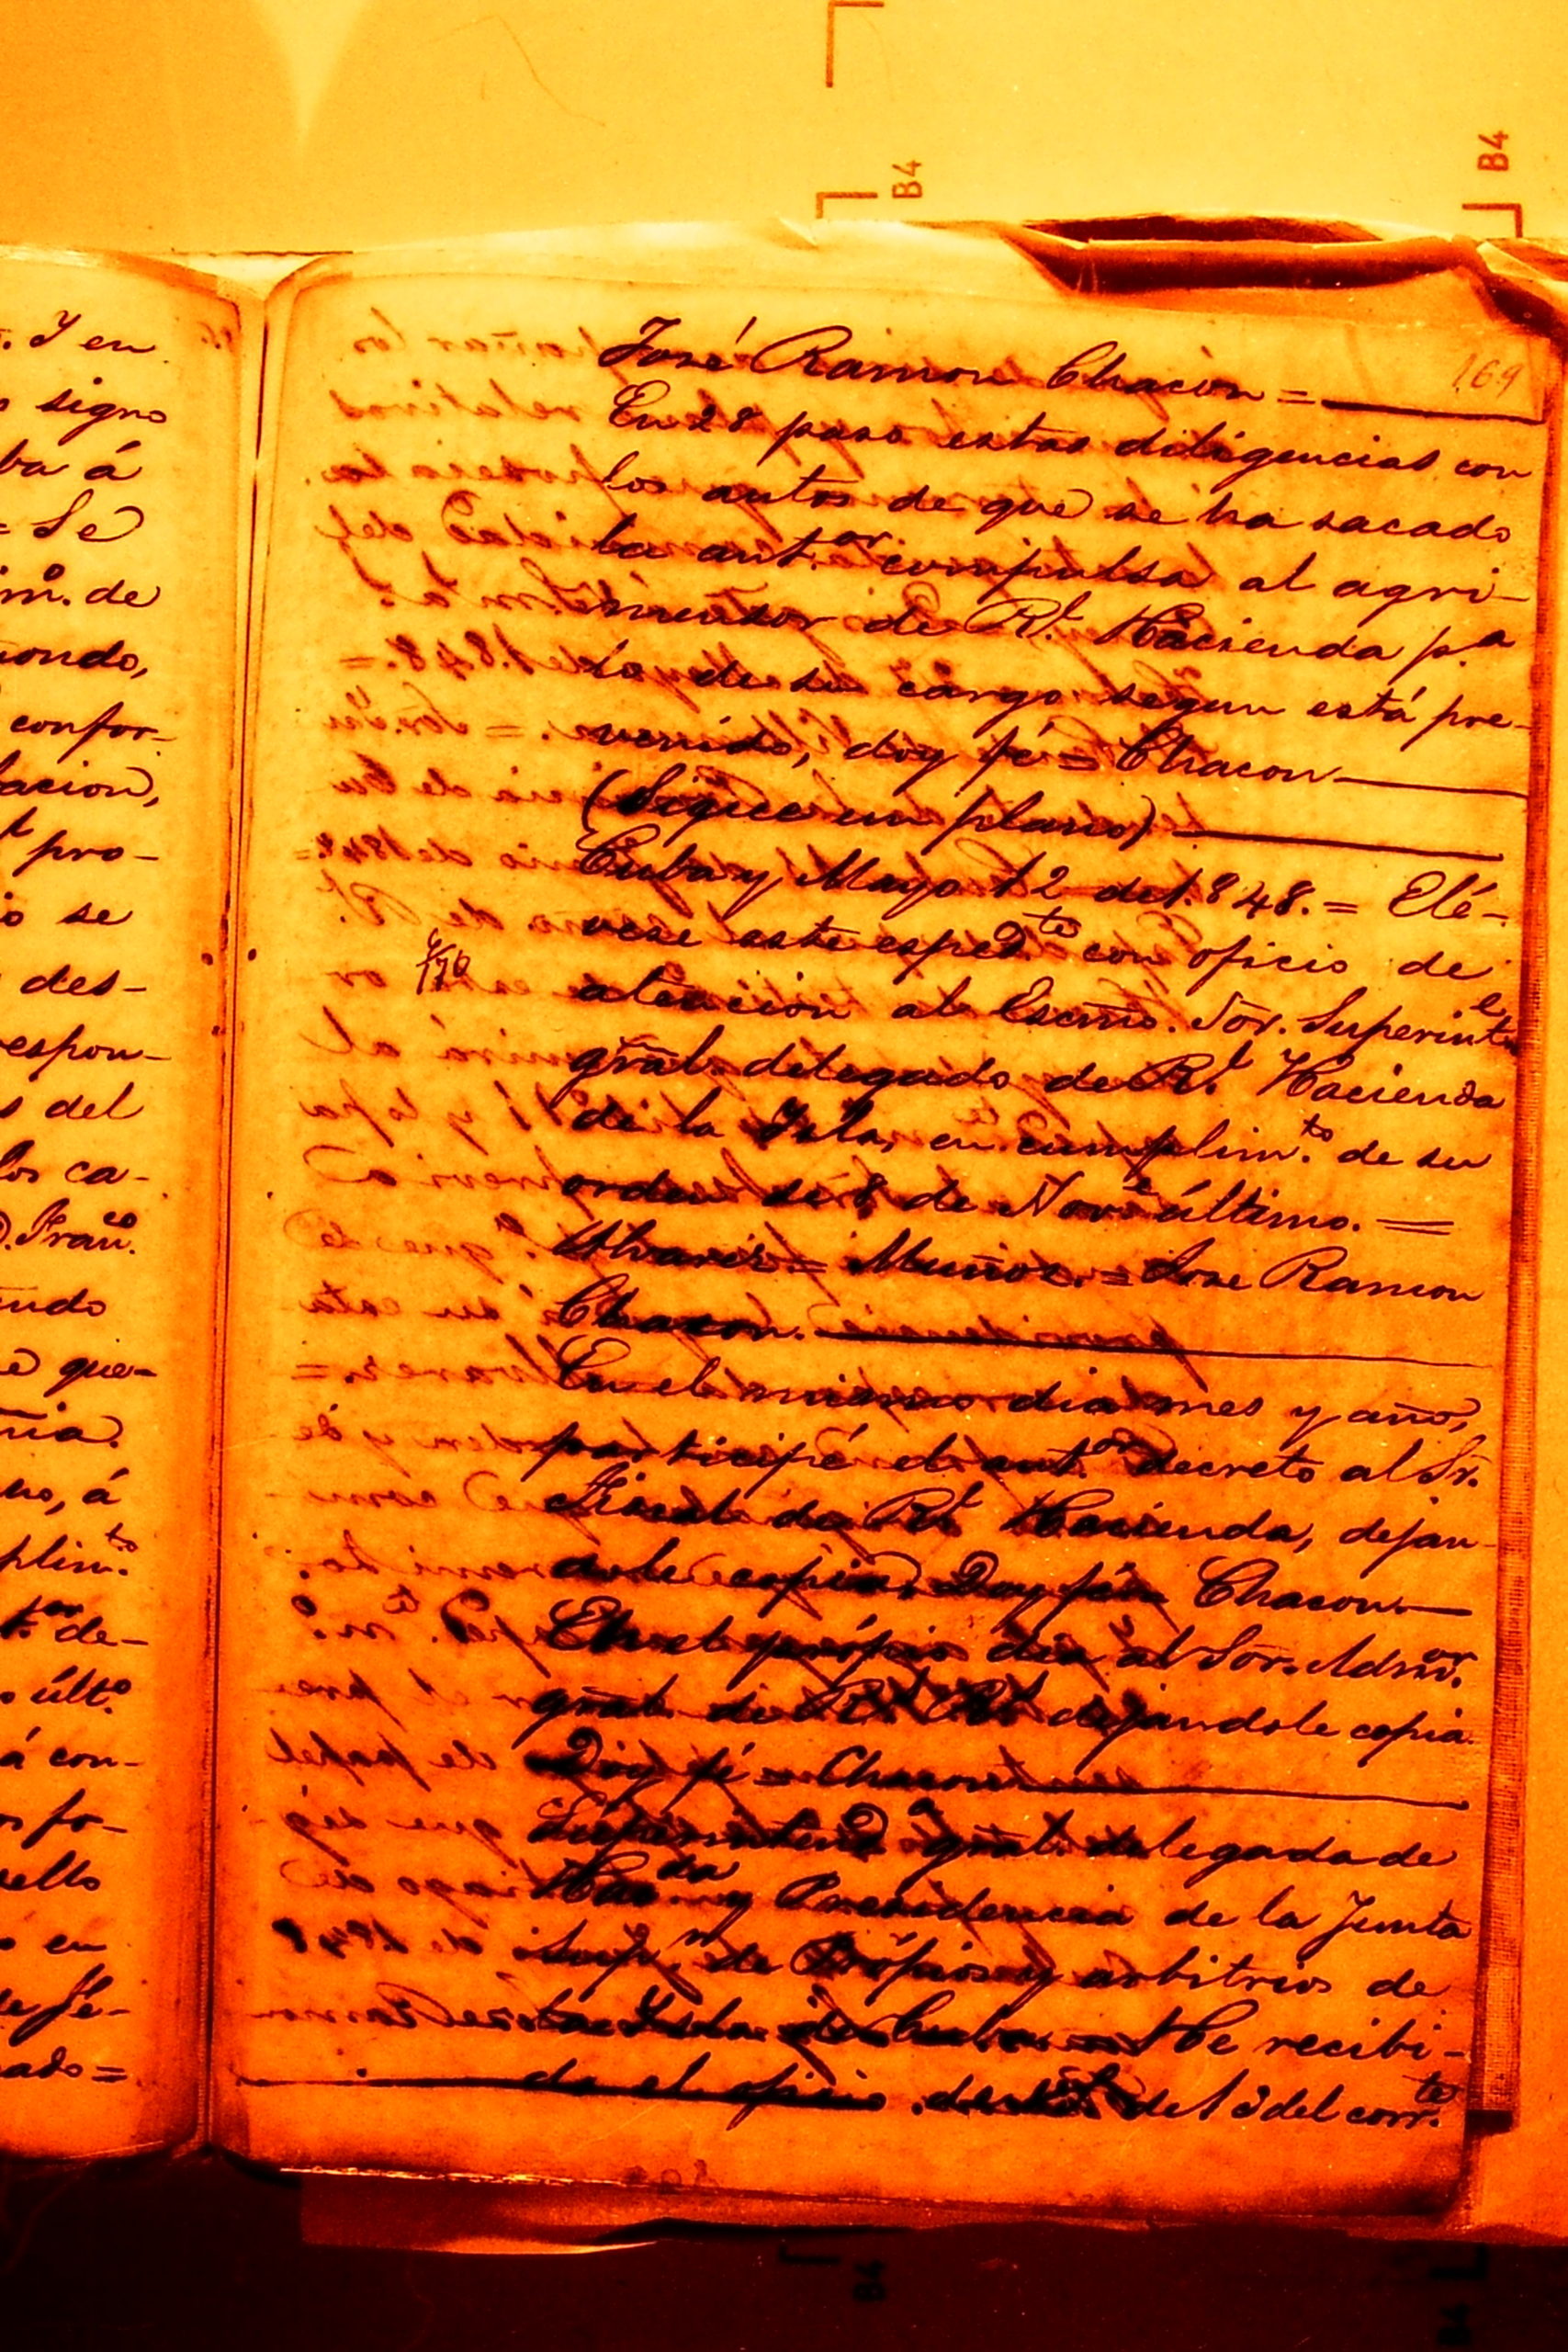 B4
B4
169
José Ramon Chacon =
En 28 paso estas diligencias con
los autos de que se ha sacado
la ant.or compulsa al agri-
mensor de Rl. Hacienda p.a
lo de su cargo segun está pre-
venido, doy fé = Chacon
(Sigue un plano)
Cuba y Mayo 12 de 1.848. = Elé-
vese este esped.te con oficio de
atencion al Escmo. Sor. Superint.e
gral. delegado de Rl. Hacienda
de la Isla, en cumplim.to de su
orden de 8 de Nov.e último. =
Alvarez = Muñoz. = Jose Ramon
Chacon.
En el mismo dia mes y año,
participé el ant.or decreto al Sr.
Fiscal de Rl. Hacienda, dejan-
dole copia, Doy fé = Chacon
En el própio dia al Sor. Admor.
gral. de Rs. Rs. dejandole copia
Doy fé = Chacon
Superintend.a gral. delegada de
Hac.da y Presidencia de la Junta
Sup.r de Própios y arbitrios de
la Isla de Cuba. = He recibi-
do el oficio de del 3 del corr.te
. Y en
signo
ba á
= Se
de
confor-
lacion,
pro-
se
des-
espon-
del
los ca-
D. Fran.co
que-
á
plim.to
de-
últ.o
á con-
en
B4